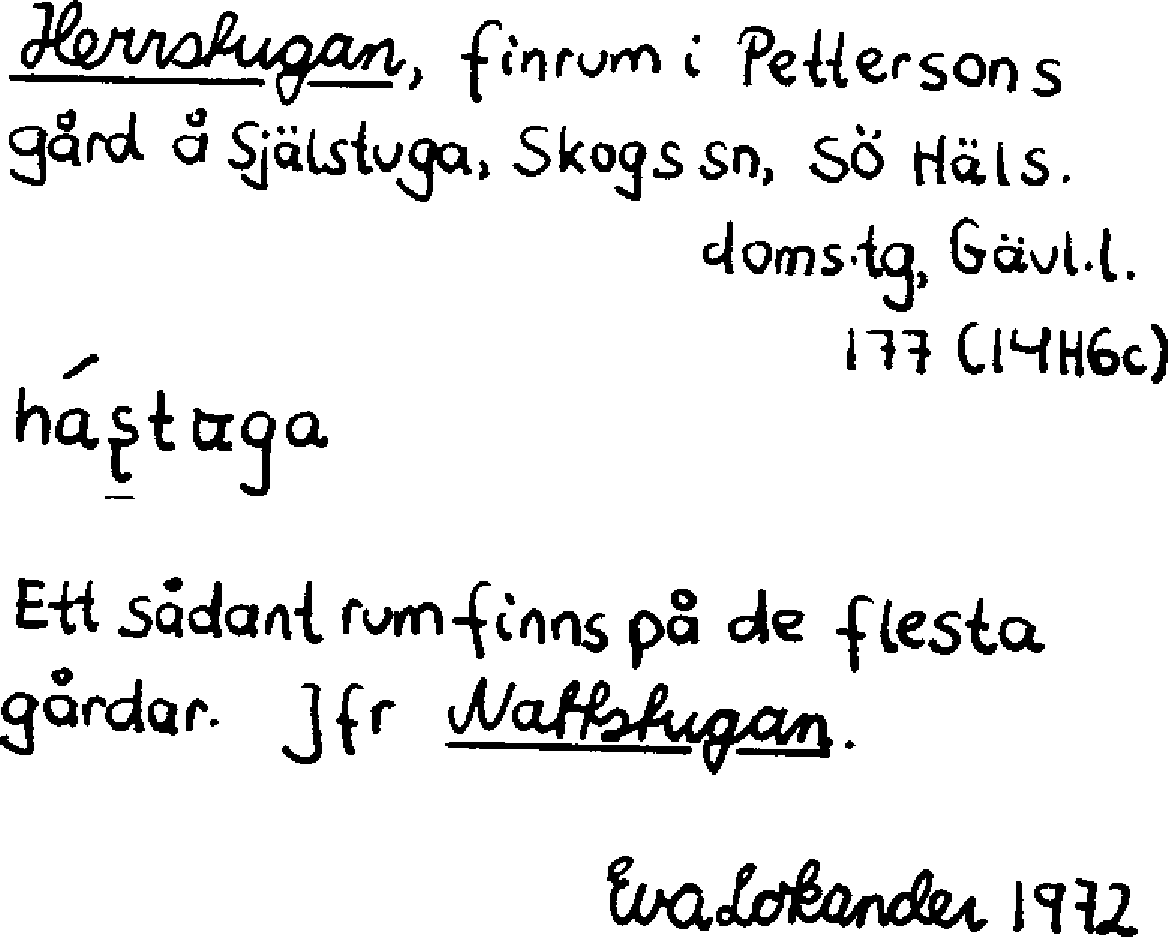 Herrstugan, finrum i Pettersons
gård å Själstuga, Skogs sn, Sö Häls.
doms.tg, Gävl.l.
177 (14H6c)
Ett sådant rum finns på de flesta
gårdar. Jfr Nattstugan.
Eva Lokander 1972